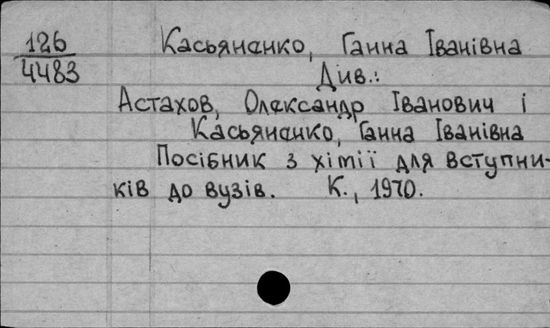 126 Касьяненко, Ганна Іванівна
4483 Див.:
Астахов, Олександр Іванович і
Касьяненко, Ганна Іванівна
Посібник з хімії для вступни-
ків до вузів. К., 1970.